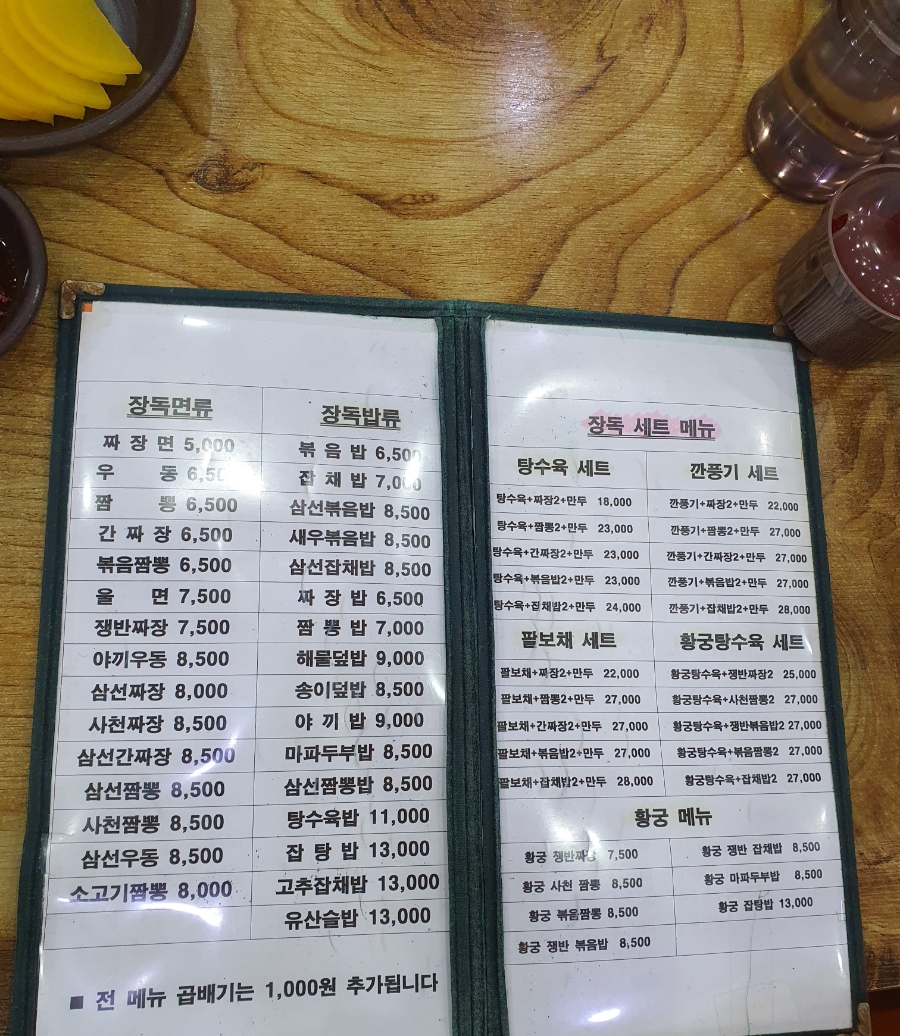 장독면류
짜 장 면 5,000
우 동 6,500
짬 뽕 6,500
간 짜 장 6,500
볶음짬뽕 6,500
울 면 7,500
쟁반짜장 7,500
야끼우동 8,500
삼선짜장 8,000
사천짜장 8,500
삼선간짜장 8,500
삼선짬뽕 8,500
사천짬뽕 8,500
삼선우동 8,500
소고기짬뽕 8,000
장독밥류
볶 음 밥 6,500
잡 채 밥 7,000
삼선볶음밥 8,500
새우볶음밥 8,500
삼선잡채밥 8,500
짜 장 밥 6,500
짬 뽕 밥 7,000
해물덮밥 9,000
송이덮밥 8,500
야 끼 밥 9,000
마파두부밥 8,500
삼선짬뽕밥 8,500
탕수육밥 11,000
잡 탕 밥 13,000
고추잡채밥 13,000
유산슬밥 13,000
■ 전 메뉴 곱배기는 1,000원 추가됩니다
장독 세트 메뉴
탕수육 세트
탕수육+짜장2+만두 18,000
탕수육+짬뽕2+만두 23,000
탕수육+간짜장2+만두 23,000
탕수육+볶음밥2+만두 23,000
탕수육+잡채밥2+만두 24,000
깐풍기 세트
깐풍기+짜장2+만두 22,000
깐풍기+짬뽕2+만두 27,000
깐풍기+간짜장2+만두 27,000
깐풍기+볶음밥2+만두 27,000
깐풍기+잡채밥2+만두 28,000
팔보채 세트
팔보채+짜장2+만두 22,000
팔보채+짬뽕2+만두 27,000
팔보채+간짜장2+만두 27,000
팔보채+볶음밥2+만두 27,000
팔보채+잡채밥2+만두 28,000
황궁탕수육 세트
황궁탕수육+쟁반짜장2 25,000
황궁탕수육+사천짬뽕2 27,000
황궁탕수육+쟁반볶음밥2 27,000
황궁탕수육+볶음짬뽕2 27,000
황궁탕수육+잡채밥2 27,000
황궁 메뉴
황궁 쟁반짜장 7,500
황궁 사천 짬뽕 8,500
황궁 볶음짬뽕 8,500
황궁 쟁반 볶음밥 8,500
황궁 쟁반 잡채밥 8,500
황궁 마파두부밥 8,500
황궁 잡탕밥 13,000